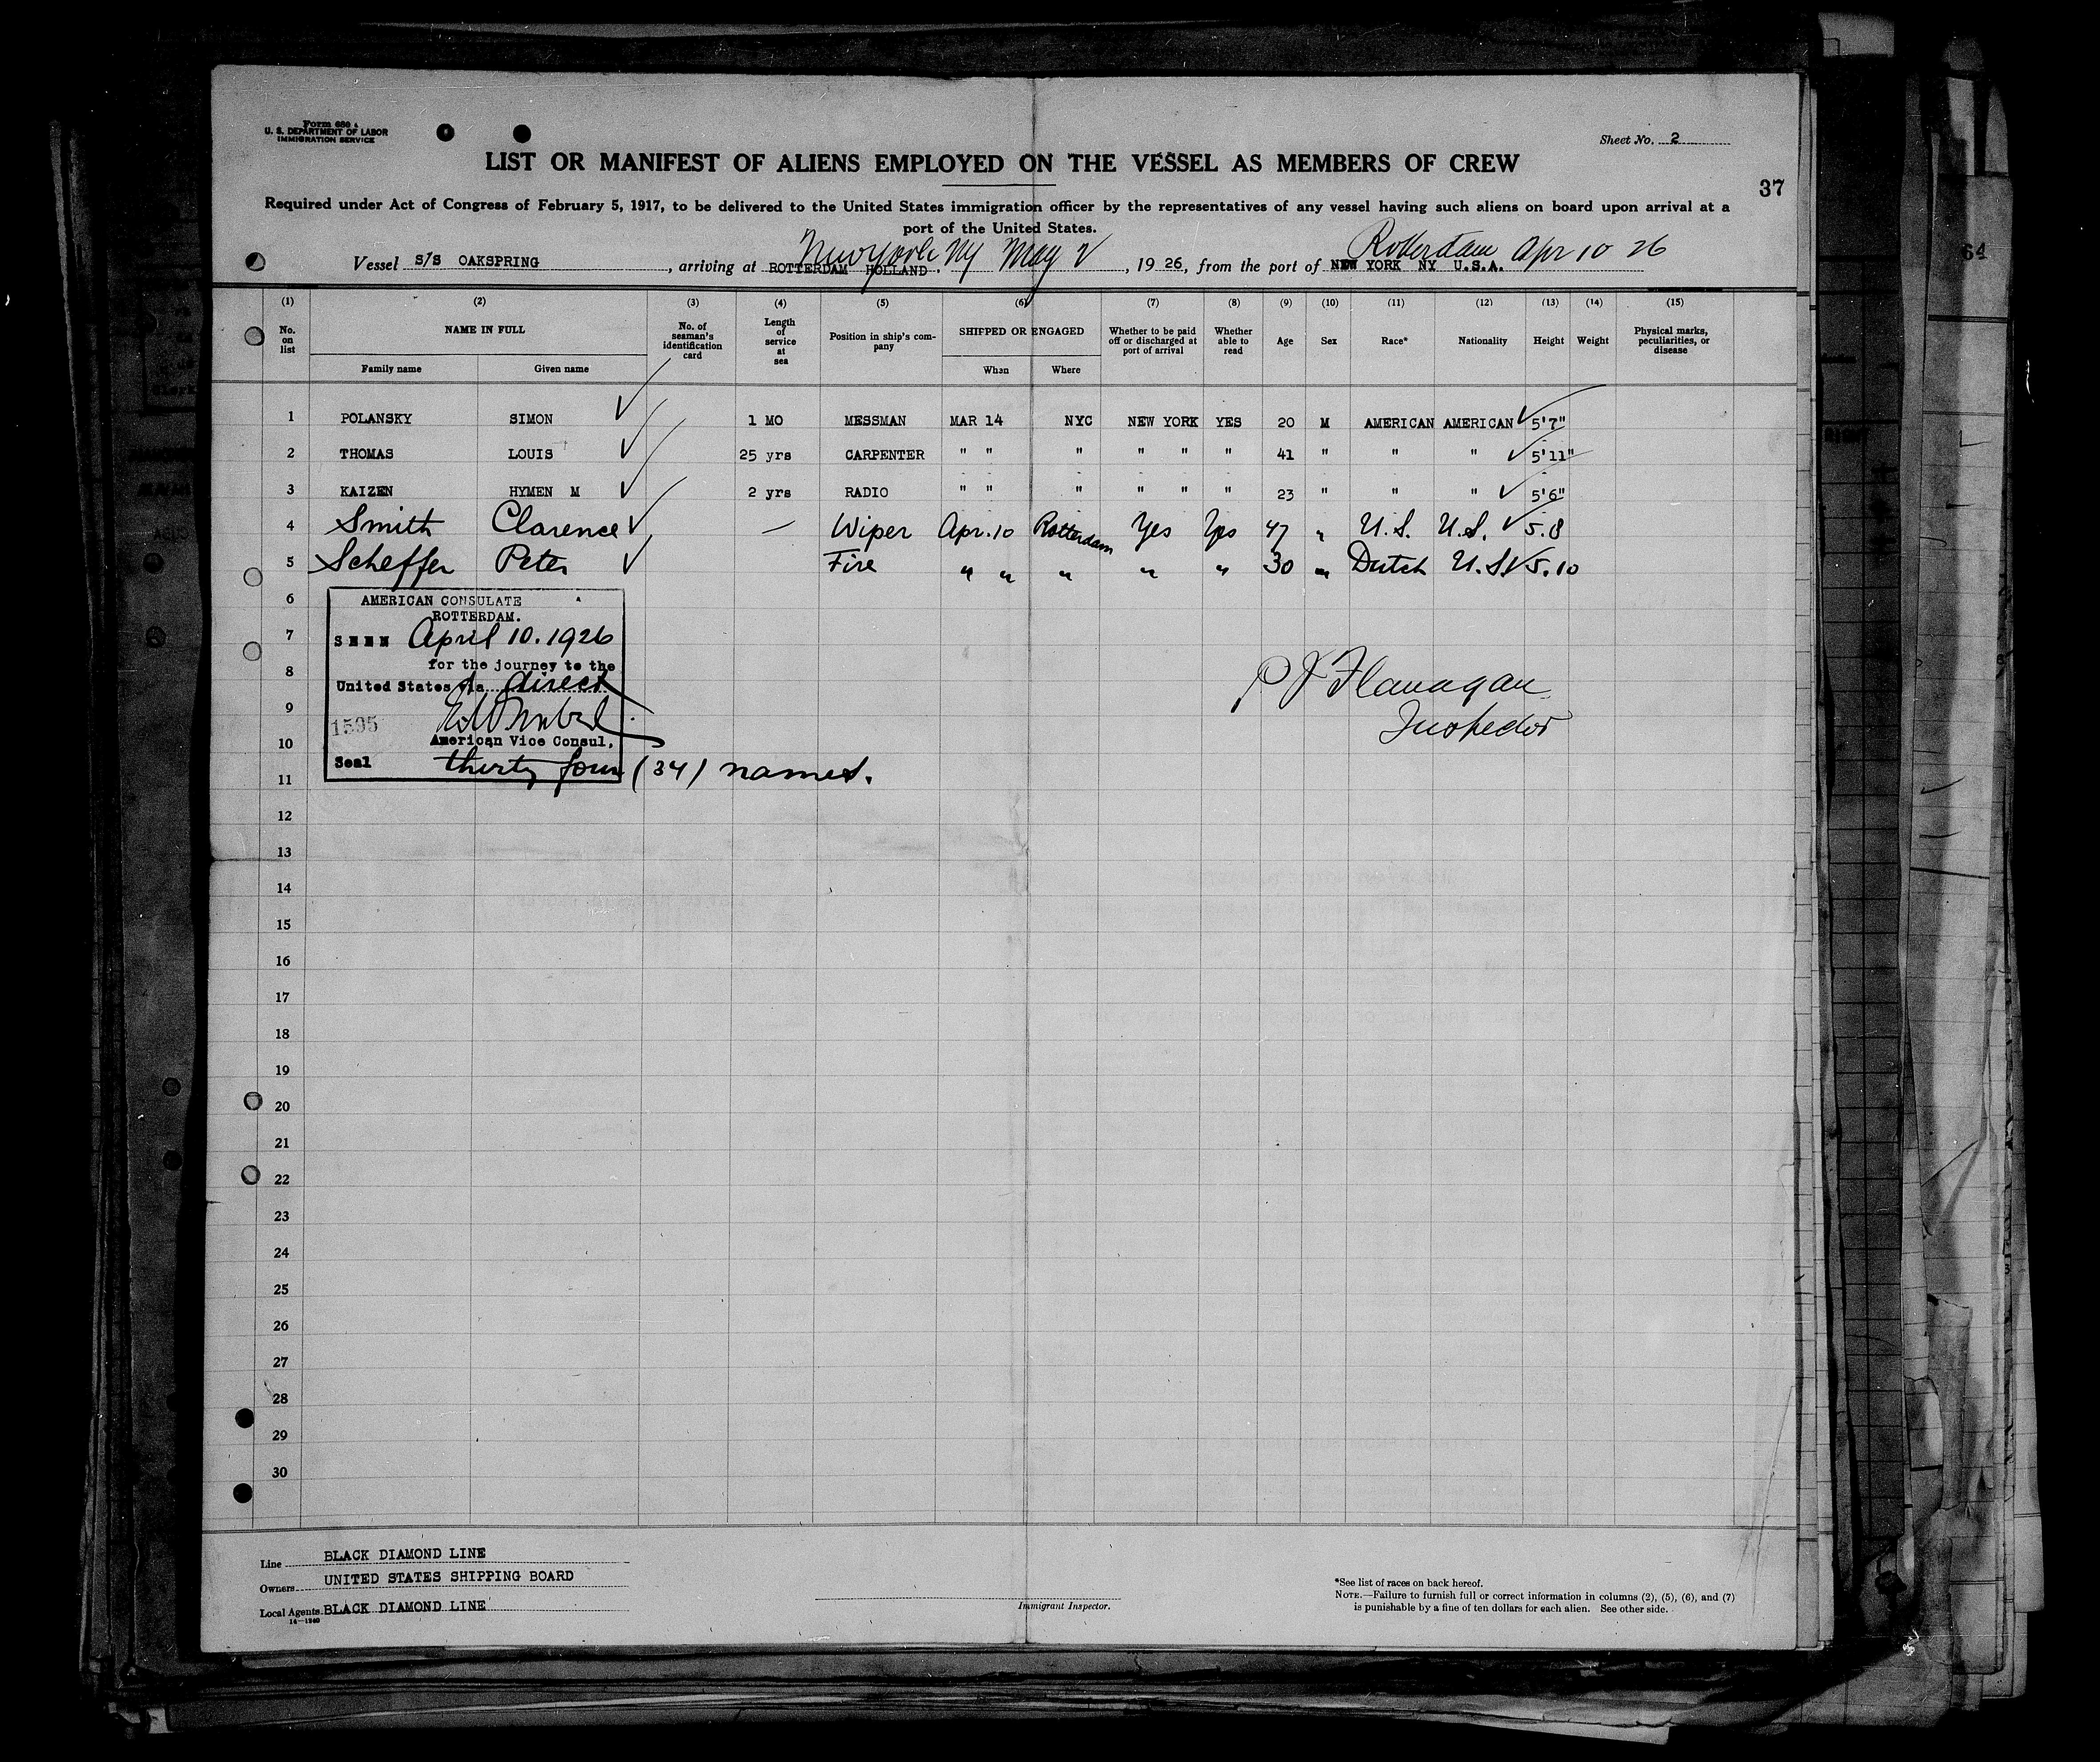 Form 680 A
U. S. DEPARTMENT OF LABOR
IMMIGRATION SERVICE
Sheet No. 2
LIST OR MANIFEST OF ALIENS EMPLOYED ON THE VESSEL AS MEMBERS OF CREW
37
Required under Act of Congress of February 5, 1917, to be delivered to the United States immigration officer by the representatives of any vessel having such aliens on board upon arrival at a
port of the United States.
New York NY May 2 Rotterdam Apr 10 26
Vessel S/S OAKSPRING, arriving at ROTTERDAM HOLLAND., 1926, from the port of NEW YORK NY U.S.A.
64
(1) (2) (3) (4) (5) (6) (7) (8) (9) (10) (11) (12) (13) (14) (15)
No. on list NAME IN FULL Family name Given name No. of seaman's identification card Length of service at sea Position in ship's company SHIPPED OR ENGAGED When Where Whether to be paid off or discharged at port of arrival Whether able to read Age Sex Race* Nationality Height Weight Physical marks, peculiarities, or disease
1 POLANSKY SIMON ✓ 1 MO MESSMAN MAR 14 NYC NEW YORK YES 20 M AMERICAN AMERICAN ✓ 5'7"
2 THOMAS LOUIS ✓ 25 yrs CARPENTER " " " " " " 41 " " " ✓ 5'11"
3 KAIZEN HYMEN M ✓ 2 yrs RADIO " " " " " " 23 " " " ✓ 5'6"
4 Smith Clarence ✓ — Wiper Apr. 10 Rotterdam Yes Yes 47 " U.S. U.S. ✓ 5.8
5 Scheffer Peter ✓ Fire " " " " " 30 " Dutch U.S. ✓ 5.10
6 AMERICAN CONSULATE
ROTTERDAM.
7 SEEN April 10. 1926
for the journey to the
8 United States via direct
P J Flanagan
9
1595
Inspector
10 American Vice Consul,
Seal thirty four (34) names.
11
12
13
14
15
16
17
18
19
20
21
22
23
24
25
26
27
28
29
30
Line BLACK DIAMOND LINE
Owners UNITED STATES SHIPPING BOARD
Local Agents BLACK DIAMOND LINE
14—1240
Immigrant Inspector.
*See list of races on back hereof.
NOTE.—Failure to furnish full or correct information in columns (2), (5), (6), and (7)
is punishable by a fine of ten dollars for each alien. See other side.